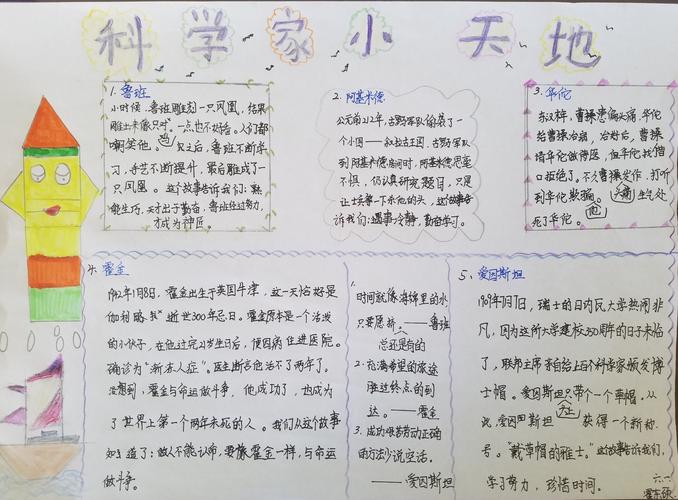 科学家小天地
1. 鲁班
小时候,鲁班雕刻一只凤凰,结果
雕出来像只鸡。一点也不好看。人们都
嘲笑他。久之后,鲁班不断学
习,手艺不断提升,最后雕成了一
只凤凰。这个故事告诉我们:熟
能生巧,天才出于勤奋,鲁班经过努力,
才成为神匠。
2. 阿基米德
公元前212年,古罗马军队包装了一
个小国——叙拉古王国,古罗马军队
到阿基米德房间时,阿基米德思毫
不惧,仍认真研究题目,只是
让士兵等一下来他的头,这故事告
诉我们:遇事冷静,勤奋学习。
3. 华佗
东汉末年,曹操患偏头痛,华佗
给曹操治病,治好后,曹操
请华佗做侍医,但华佗找借
口拒绝了。不久曹操发作,打听
到华佗欺骗。大肃生气处
死了华佗。他
4. 霍金
1942年1月8日,霍金出生于英国牛津,这一天恰好是
伽利略逝世300年忌日。霍金原本是一个活泼
的小伙子,在他过完21岁生日后,便因病住进医院。
确诊为“渐冻人症”。医生断言他活不了两年了。
没想到,霍金与命运做斗争,他成功了,也成为
了世界上第一个两年未死的人。我们从这个故事
知道了:做人不能认命,要像霍金一样,与命运
做斗争。
1.
时间就像海绵里的水
只要愿挤——鲁班
总还是有的
2. 充满希望的旅途
胜过终点的到
达。——霍金
3. 成功=艰苦劳动+正确
的方法+少说空话。
——爱因斯坦
5. 爱因斯坦
1909年7月7日,瑞士的日内瓦大学热闹非
凡,因为这所大学建校350周年的日子来临
了,联邦主席亲自给上百个科学家颁发博
士帽。爱因斯坦只带一个草帽。从
此,爱因斯坦获得一个新称
号。“戴草帽的雅士。”这故事告诉我们,
学习努力,珍惜时间。
六.一